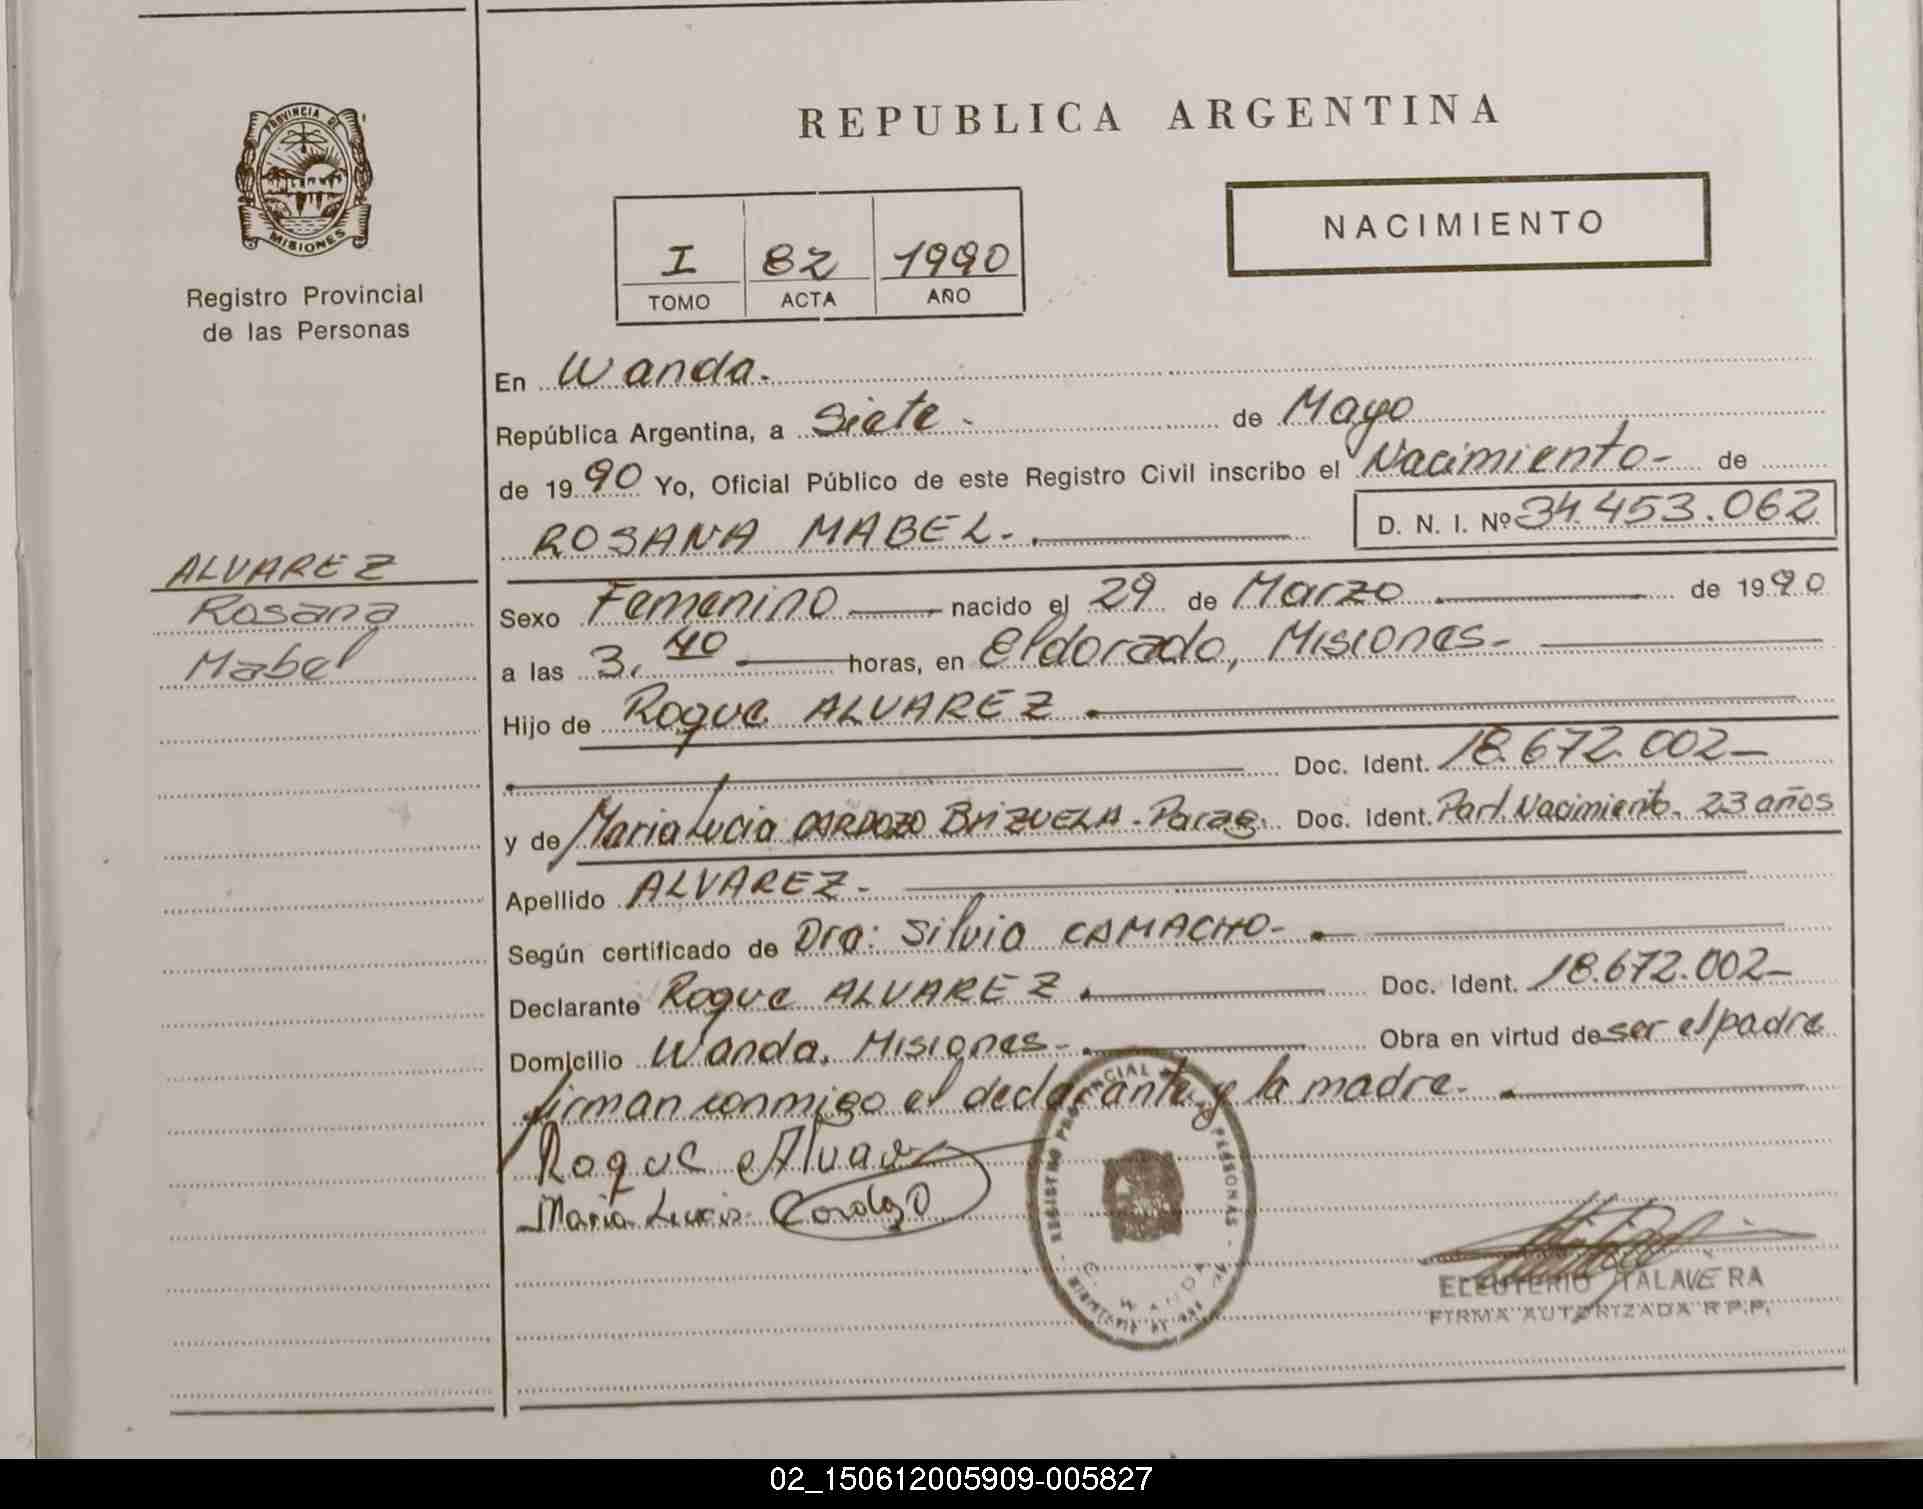 PROVINCIA DE
MISIONES
Registro Provincial
de las Personas
ALVAREZ
Rosana
Mabel
REPUBLICA ARGENTINA
NACIMIENTO
I 82 1990
TOMO ACTA AÑO
En Wanda.
República Argentina, a Siete - de Mayo
de 1990 Yo, Oficial Público de este Registro Civil inscribo el Nacimiento - de
ROSANA MABEL -. D. N. I. Nº 34.453.062
Sexo Femenino nacido el 29 de Marzo de 1990
a las 3.40 horas, en Eldorado, Misiones -
Hijo de Roque ALVAREZ
Doc. Ident. 18.672.002 -
y de Maria Lucia CARDOZO BRIZUELA - Parag. Doc. Ident. Part. Nacimiento. 23 años
Apellido ALVAREZ -
Según certificado de Dra: Silvia CAMACHO -
Declarante Roque ALVAREZ Doc. Ident. 18.672.002 -
Domicilio Wanda, Misiones - Obra en virtud de ser el padre
firman conmigo el declarante y la madre -
Roque Alvarez
Maria Lucia Cardozo
REGISTRO PROVINCIAL PERSONAS
WANDA
ELEUTERIO TALAVERA
FIRMA AUTORIZADA R.P.P.
02_150612005909-005827